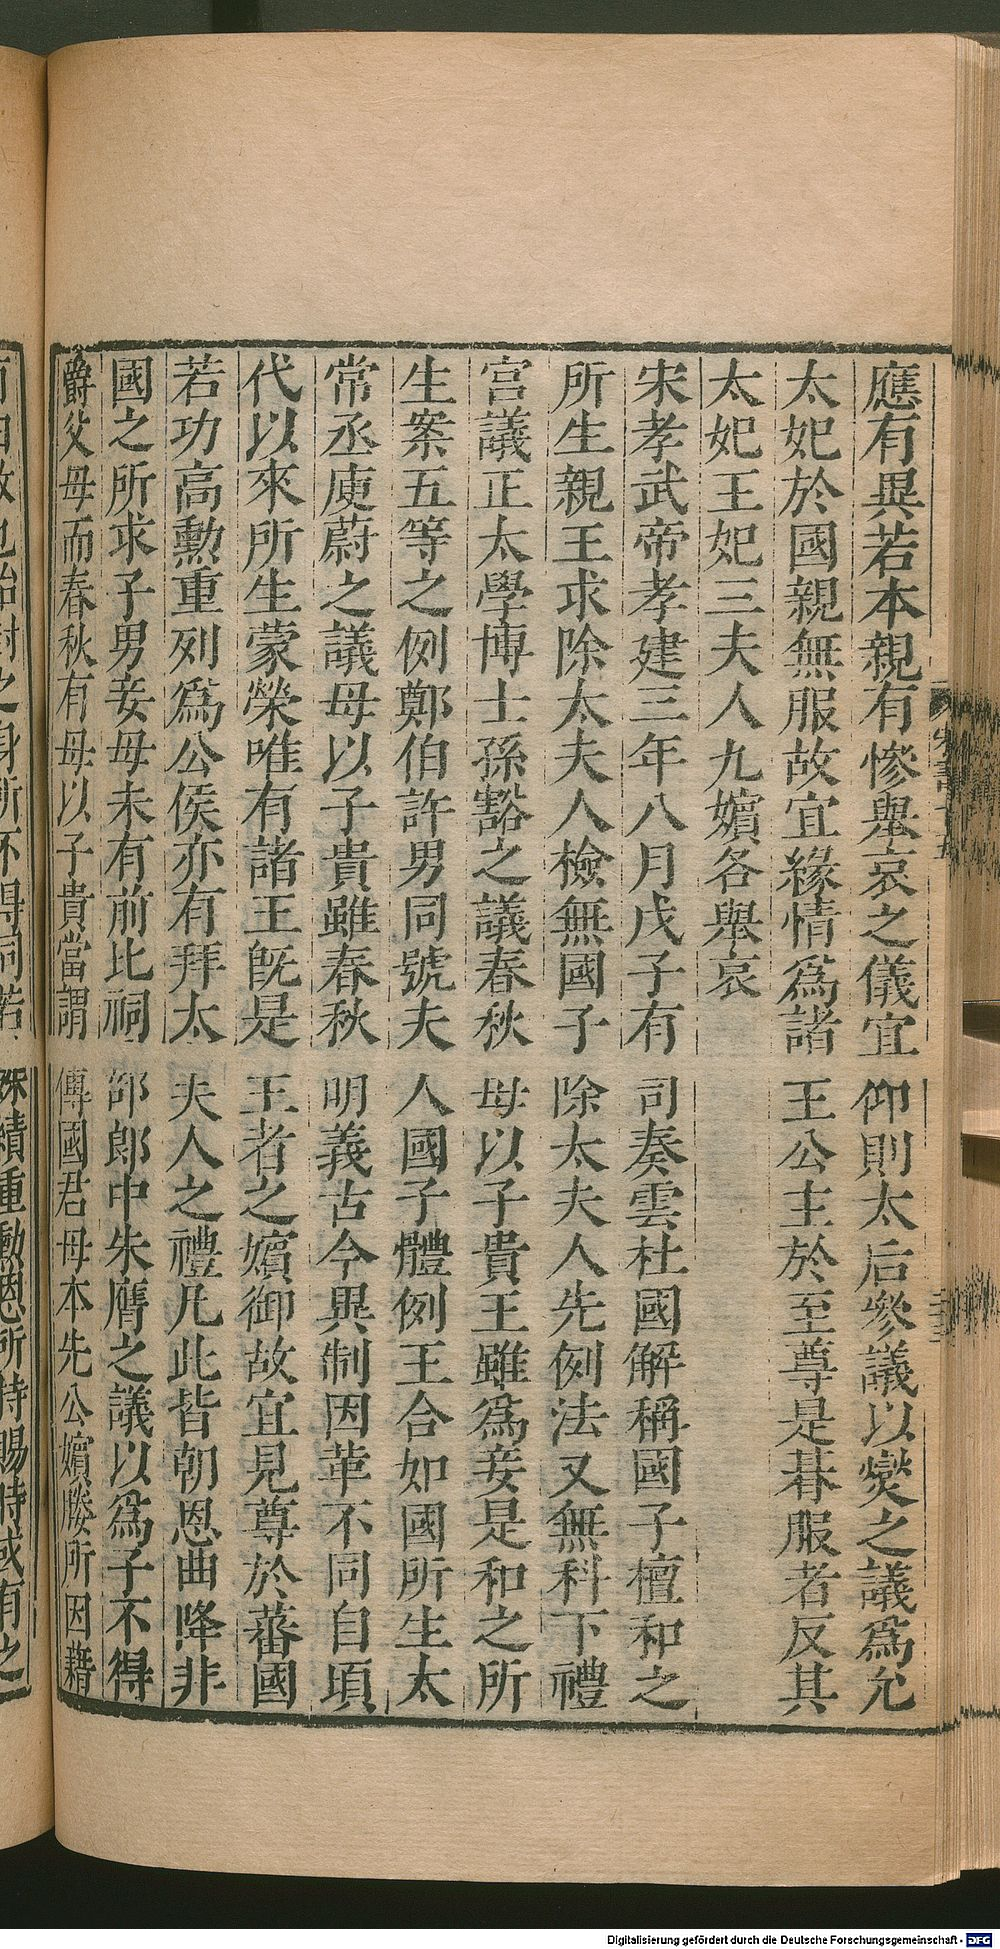 應有異若本親有慘舉哀之儀宜仰則太后參議以爕之議爲允
太妃於國親無服故宜緣情爲諸王公主於至尊是朞服者反其
太妃王妃三夫人九嬪各舉哀
宋孝武帝孝建三年八月戊子有司奏雲杜國解稱國子檀和之
所生親王求除太夫人檢無國子除太夫人先例法又無科下禮
宫議正太學博士孫豁之議春秋母以子貴王雖爲妾是和之所
生案五等之例鄭伯許男同號夫人國子體例王合如國所生太
常丞庾蔚之議母以子貴雖春秋明義古今異制因革不同自頃
代以來所生蒙榮唯有諸王旣是王者之嬪御故宜見尊於蕃國
若功高勳重列爲公侯亦有拜太夫人之禮凡此皆朝恩曲降非
國之所求子男妾母未有前比祠部郎中朱膺之議以爲子不得
爵父母而春秋有母以子貴當謂傳國君母本先公嬪媵所因藉
有由故也始封之身所不得同若殊績重勳恩所特賜時或有之
Digitalisierung gefördert durch die Deutsche Forschungsgemeinschaft - DFG